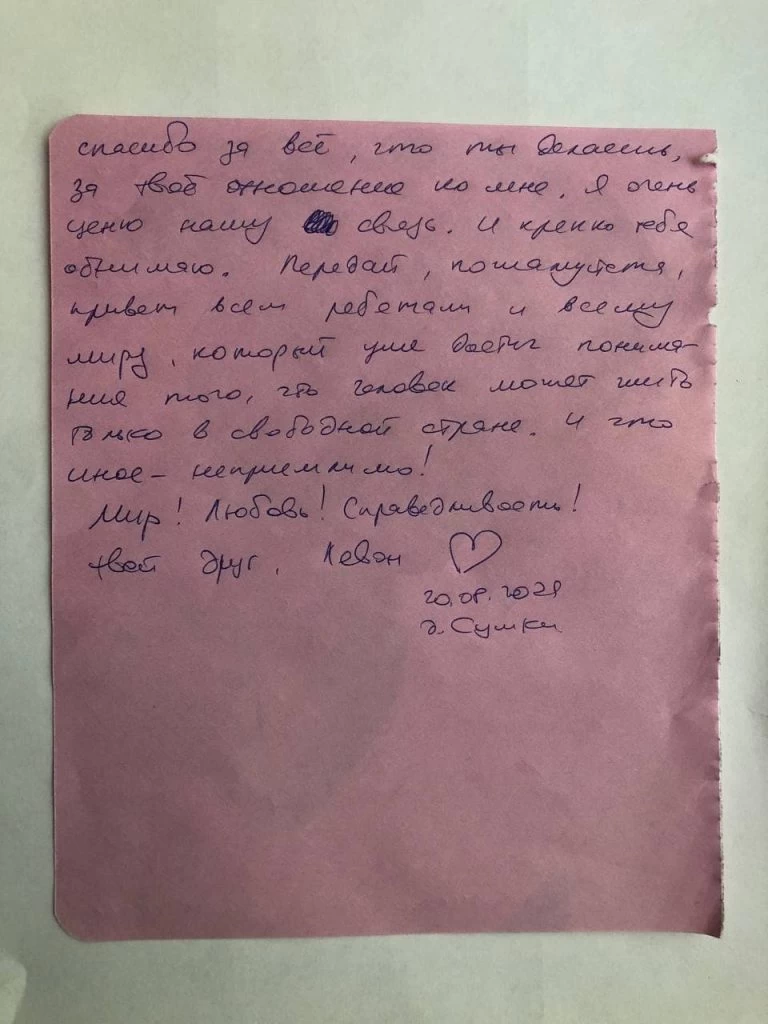 спасибо за всё, что ты делаешь,
за твоё отношение ко мне. Я очень
ценю нашу связь. И крепко тебя
обнимаю. Передай, пожалуйста,
привет всем ребятам и всему
миру, который уже достиг понима-
ния того, что человек может жить
только в свободной стране. И что
иное – неприемлимо!
Мир! Любовь! Справедливость!
твой друг, Леван ♡
20.08.2021
д. Сумки